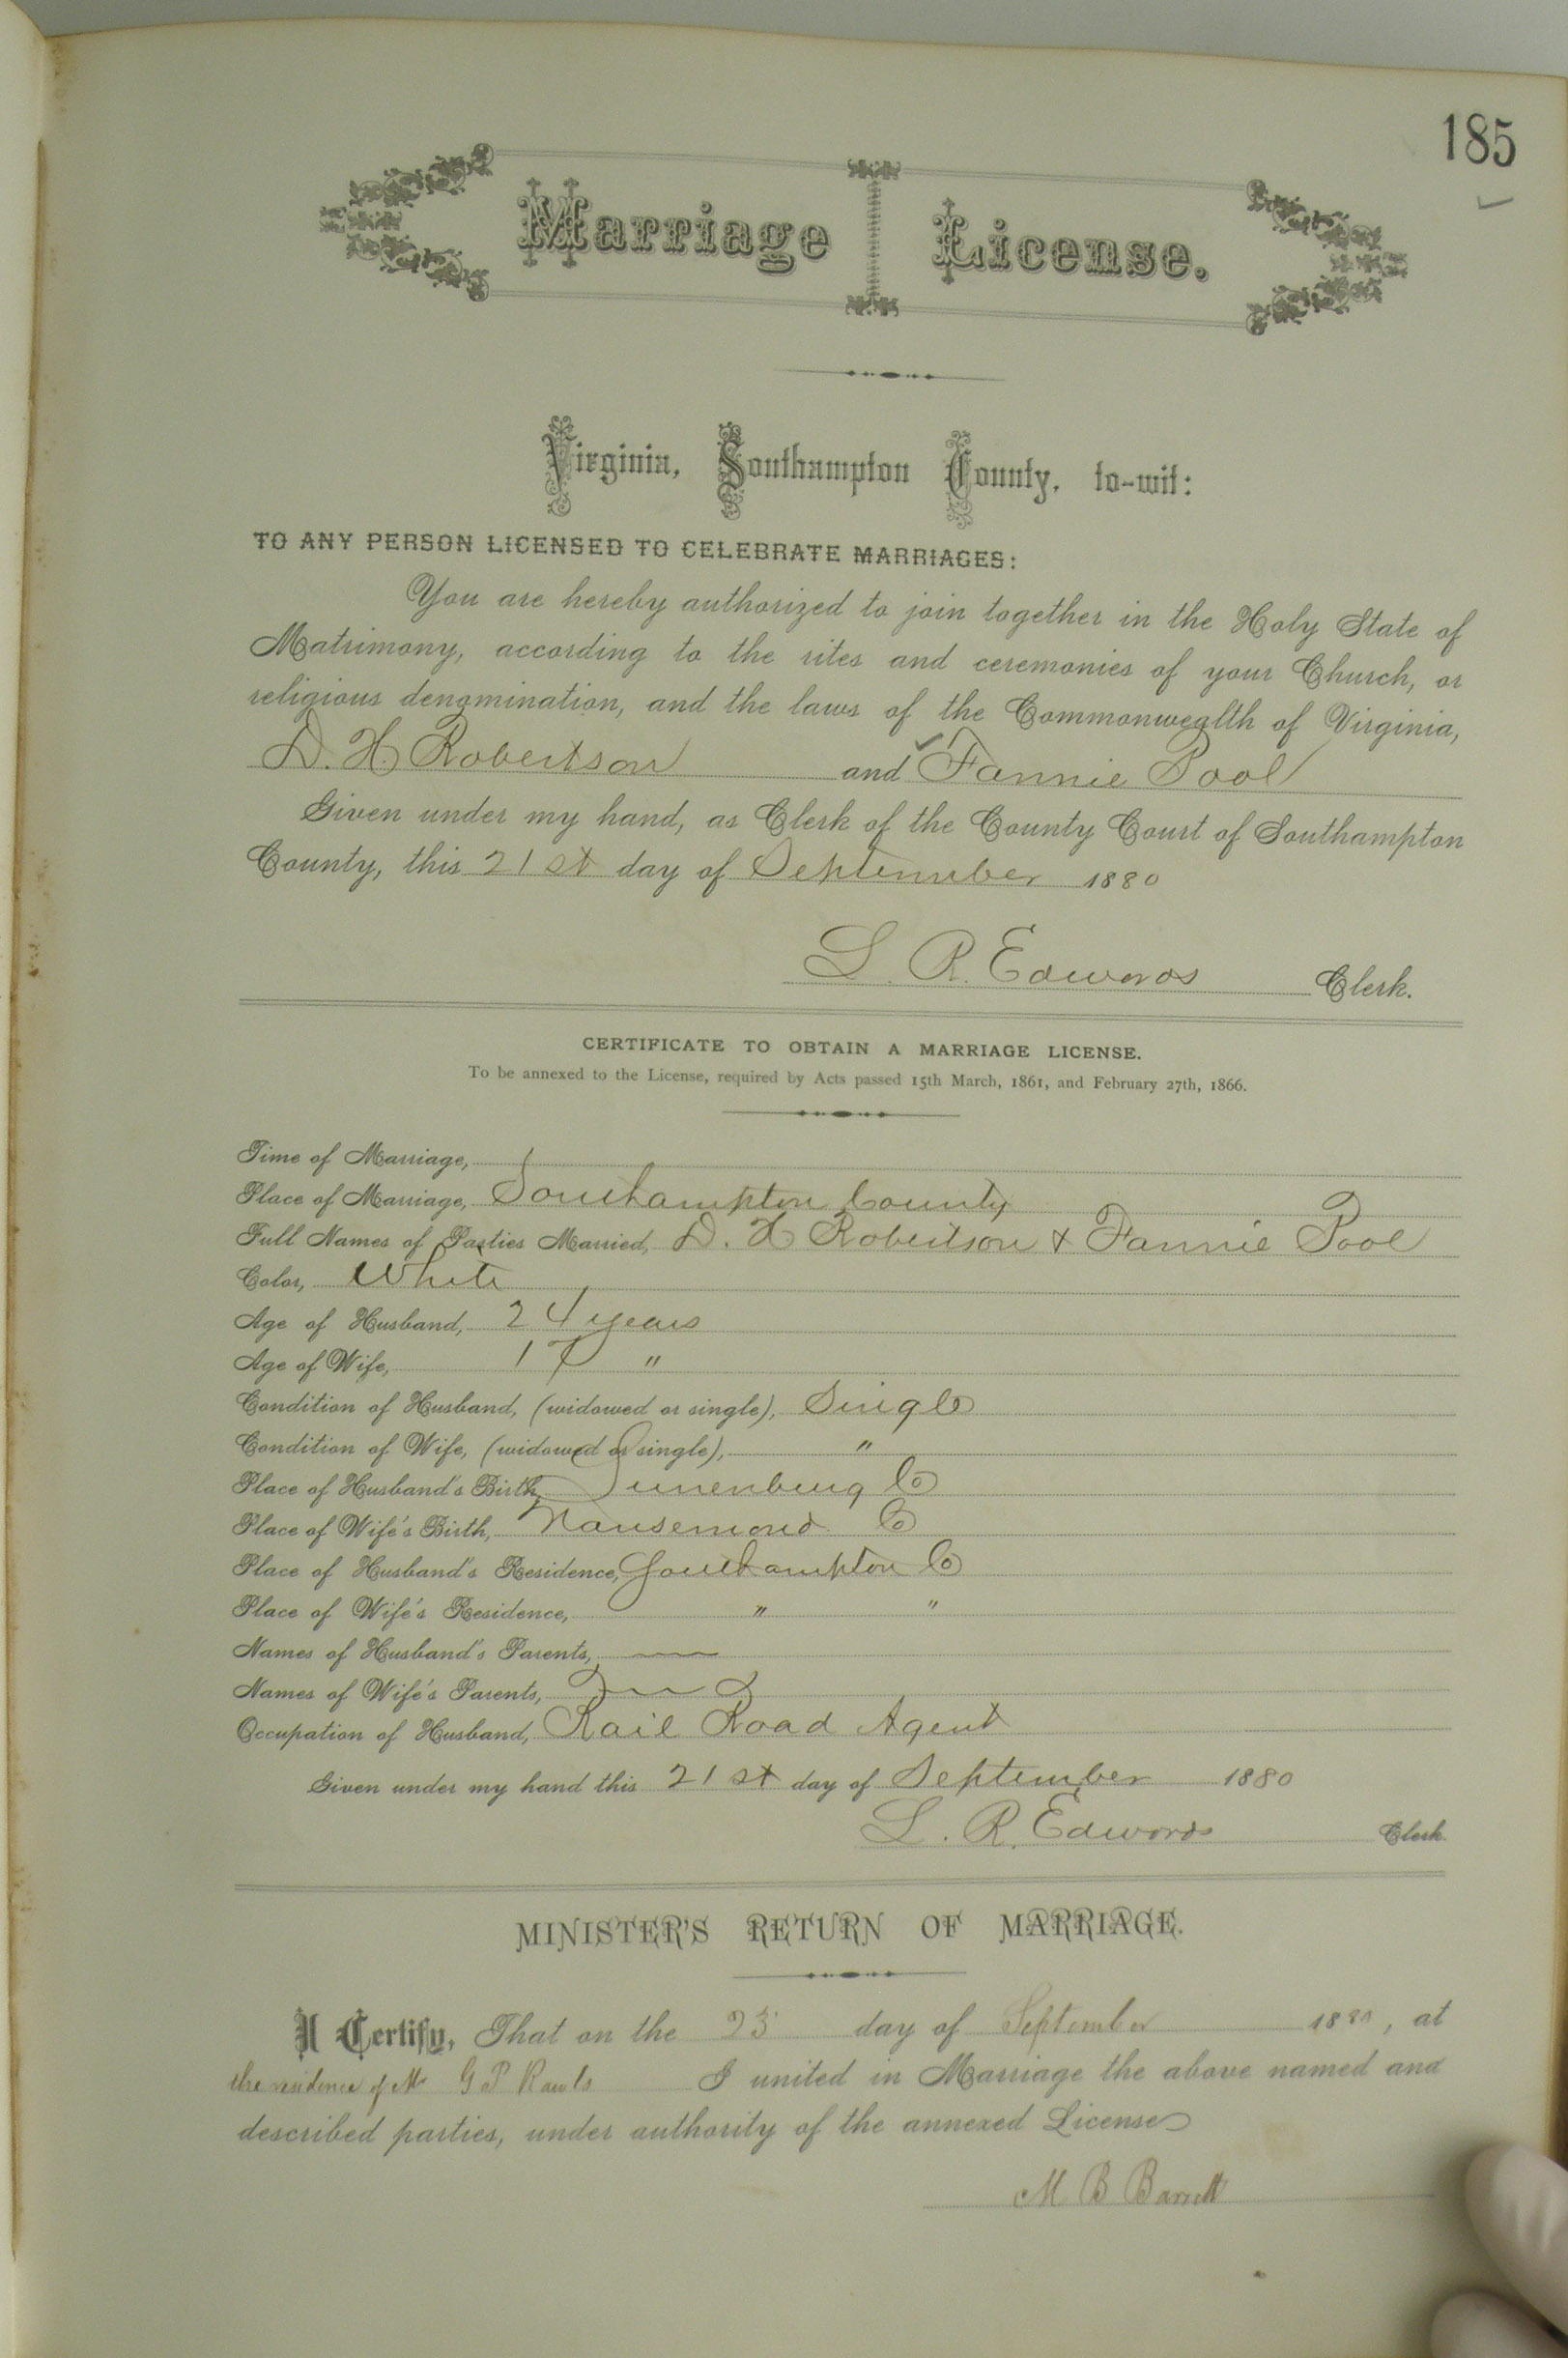 185
Marriage License.
Virginia, Southampton County, to-wit:
TO ANY PERSON LICENSED TO CELEBRATE MARRIAGES:
You are hereby authorized to join together in the Holy State of
Matrimony, according to the rites and ceremonies of your Church, or
religious denomination, and the laws of the Commonwealth of Virginia,
D. H. Robertson and Fannie Pool
Given under my hand, as Clerk of the County Court of Southampton
County, this 21st day of September 1880
L. R. Edwards Clerk.
CERTIFICATE TO OBTAIN A MARRIAGE LICENSE.
To be annexed to the License, required by Acts passed 15th March, 1861, and February 27th, 1866.
Time of Marriage,
Place of Marriage, Southampton County
Full Names of Parties Married, D. H Robertson & Fannie Pool
Color, White
Age of Husband, 24 years
Age of Wife, 17 "
Condition of Husband, (widowed or single), Single
Condition of Wife, (widowed or single), "
Place of Husband's Birth, Lunenburg Co
Place of Wife's Birth, Nansemond Co
Place of Husband's Residence, Southampton Co
Place of Wife's Residence, " "
Names of Husband's Parents,
Names of Wife's Parents,
Occupation of Husband, Rail Road Agent
Given under my hand this 21st day of September 1880
L. R. Edwards Clerk.
MINISTER'S RETURN OF MARRIAGE.
I Certify, That on the 23 day of September 1880, at
the residence of Mr G P Rawls I united in Marriage the above named and
described parties, under authority of the annexed License
M B Barrett